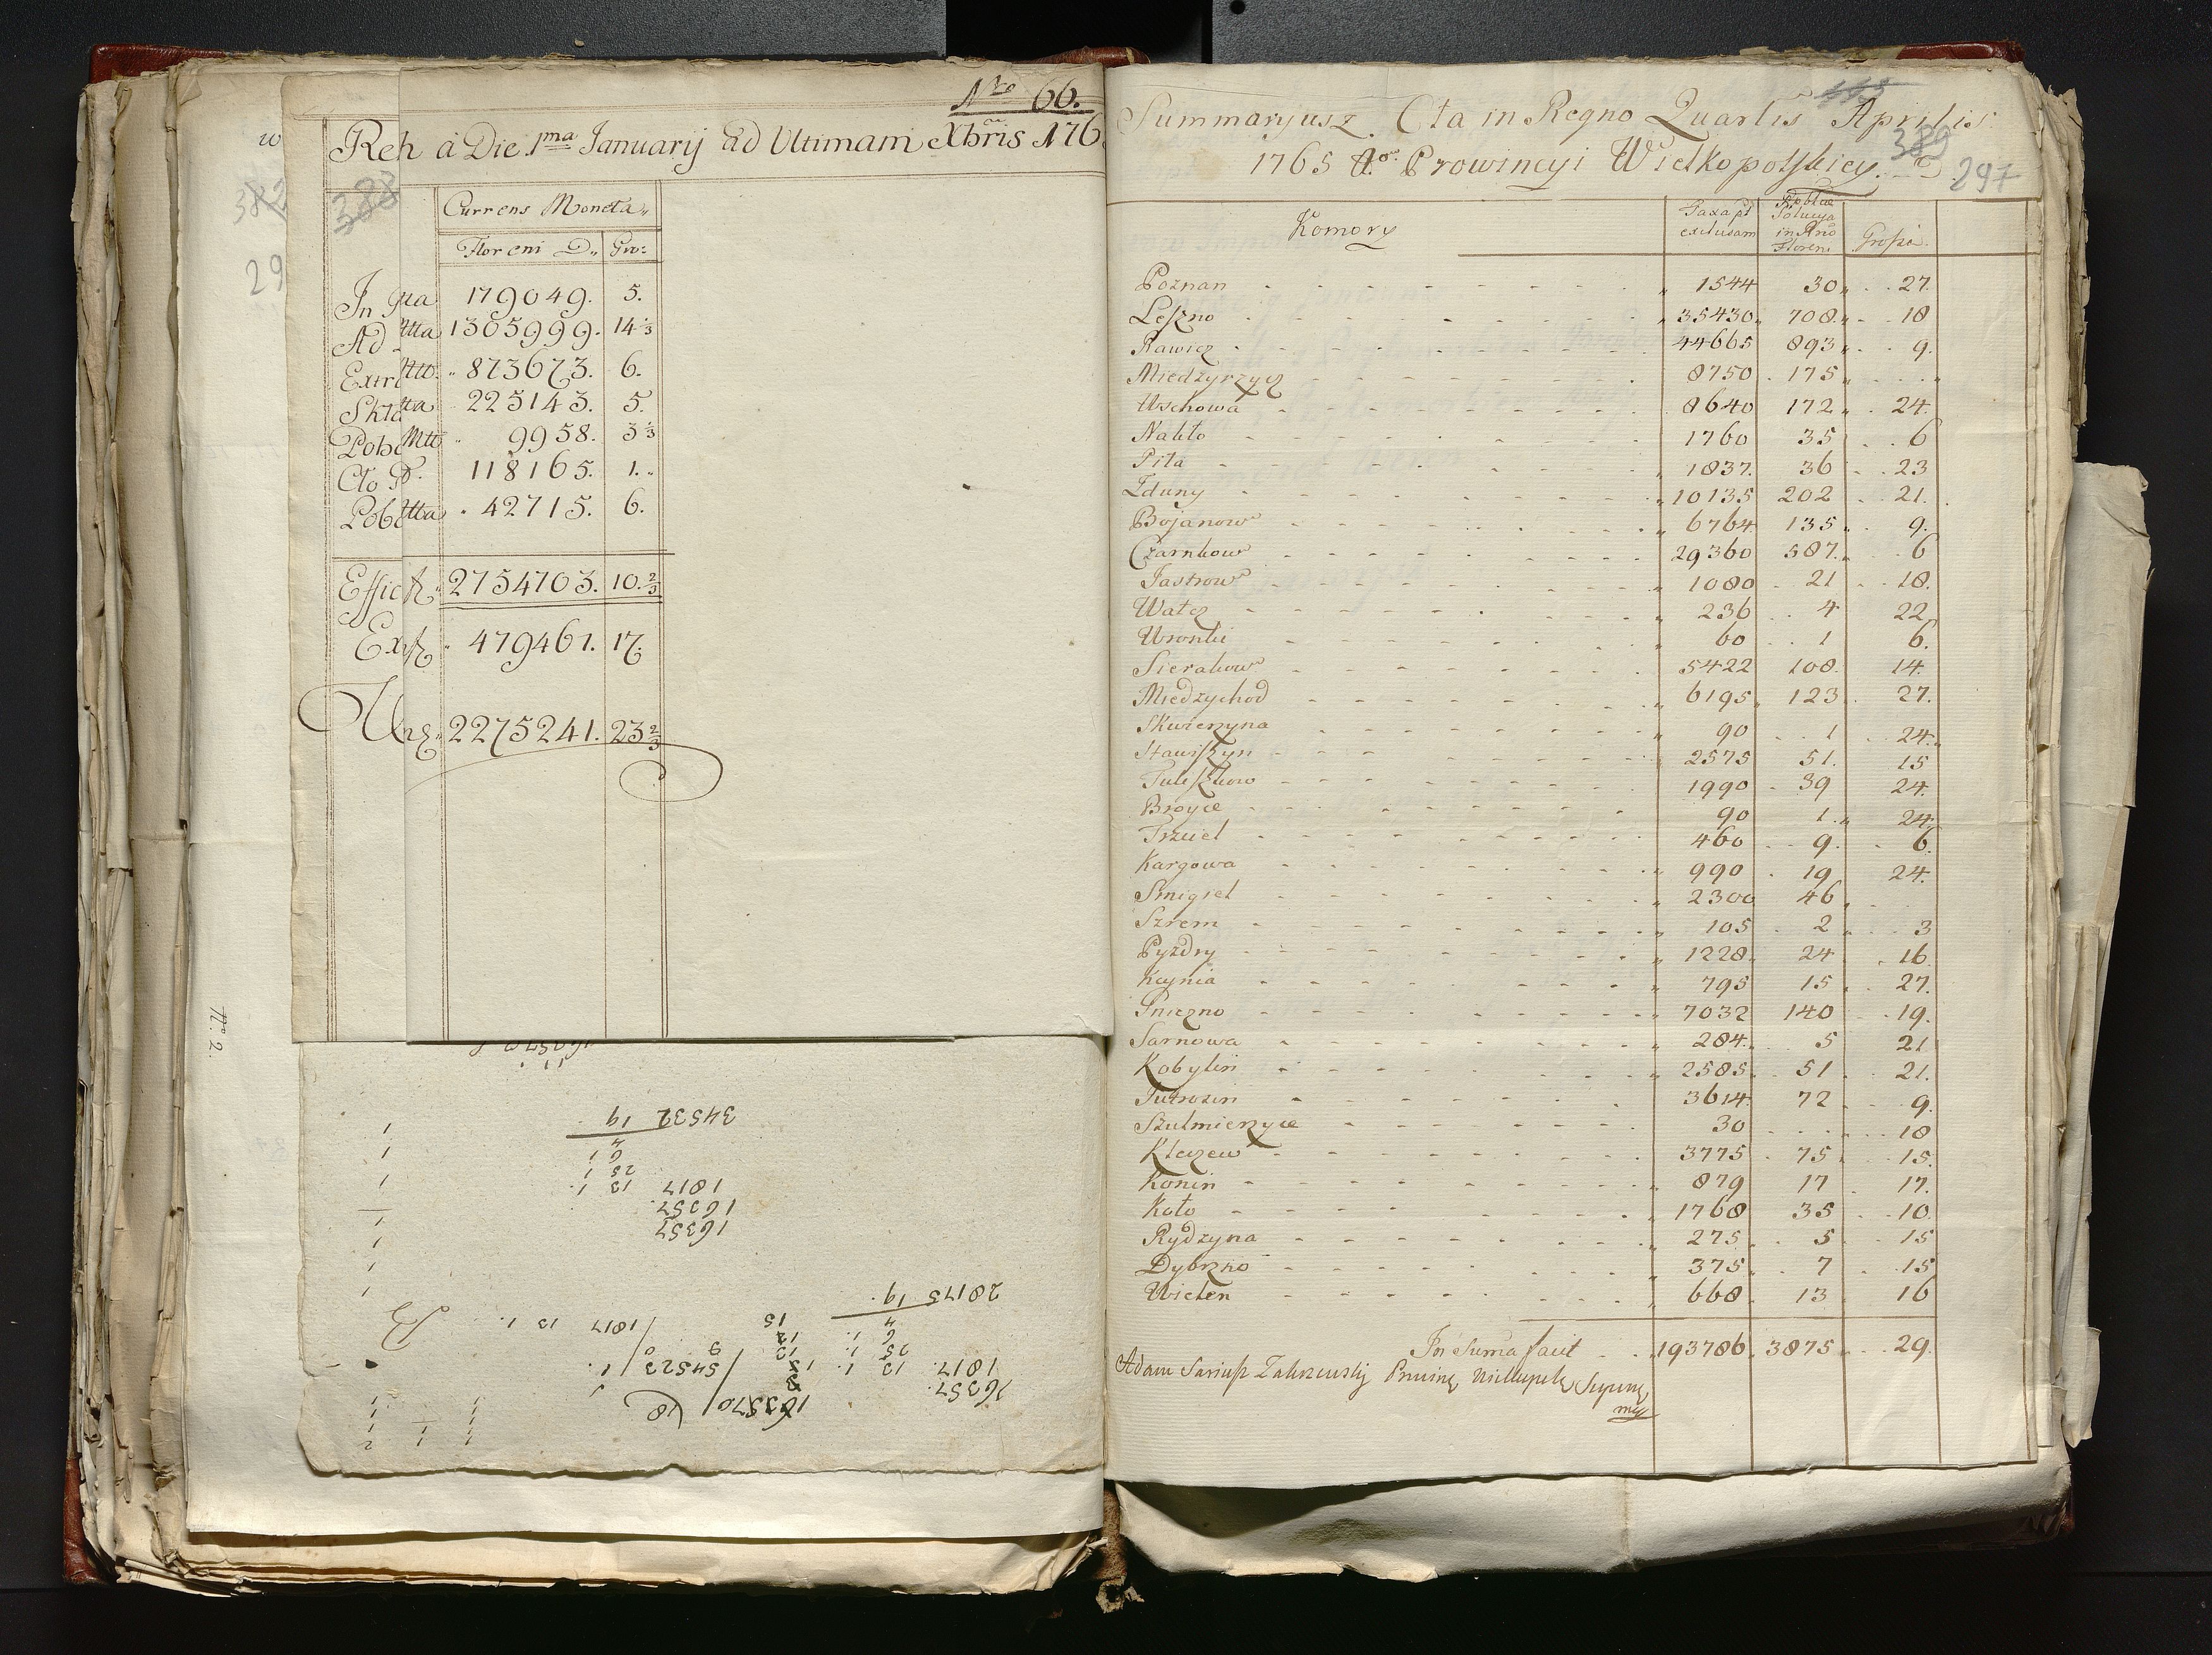 Nro 66.
Reh à Die 1ma Januarij ad Ultimam Xbris 176
382
388
29
w
Currens Moneta
Floreni D. Gro:
In ęta 179049. 5.
Ad tta 1305999. 14 1/3
Extr tto. 873673. 6.
Skła ta 225143. 5.
Pobo Mtt 9958. 3 1/3
Cło 118165. 1.
Pobo tta 42715. 6.
Effic 2754703. 10. 2/3
Ex 479461. 17.
2275241. 23 2/3
No 2.
34532 19
4
6 1
25 1
1817 13 1.
16357.
16357
28175 19.
4
6 1.
25 1.
1817. 13 1.
16357.
15
12
54523
163570
1817 13 1.
Summaryusz Cła in Regno Quartis Aprilis
1765 Ao. Prowincyi Wielkopolskiey.
389
297
Komory Taxa pt exclusam Floreni Groszi
Poznan 1544 30 27.
Leszno 35430 708 18
Rawicz 44665 893 9.
Miedzyrzycz 8750 175
Wschowa 8640 172 24.
Nakło 1760 35 6
Piła 1837. 36 23
Zduny 10135 202 21.
Bojanow 6764 135 9.
Czarnkow 29360 587. 6
Jastrow 1080 21 18.
Wałcz 236 4 22
Wronki 60 1 6.
Sierakow 5422 108. 14.
Miedzychod 6195 123 27.
Skwierzyna 90 1 24.
Stawiszyn 2575 51. 15
Tuliszkow 1990 39 24.
Broyce 90 1 24.
Trzciel 460 9. 6.
Kargowa 990 19 24.
Smigiel 2300 46
Szrem 105 2 3
Pyzdry 1228. 24 16
Kcynia 795 15 27.
Gniezno 7032 140 19.
Sarnowa 284. 5 21
Kobylin 2585. 51 21.
Jutrozin 3614 72 9.
Szulmierzyce 30 18
Kleczew 3775 75 15.
Konin 879 17 17.
Koło 1768 35 10.
Rydzyna 275 5 15
Dybrzno 375 7 15
Wielen 668 13 16
In Suma facit 193786. 3875 29.
Adam Sariusz Zakrzewskij